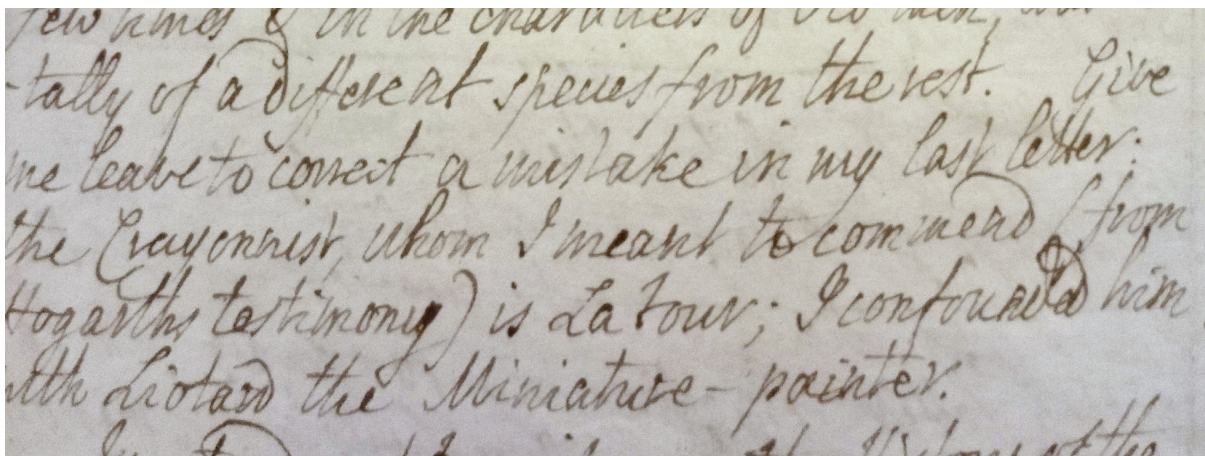 few times & in the characters of two men,
-tally of a different species from the rest. Give
me leave to correct a mistake in my last letter:
the Crayonnist, whom I meant to commend (from
Hogarths testimony) is La Tour; I confounded him
with Liotard the Miniature-painter.
of the